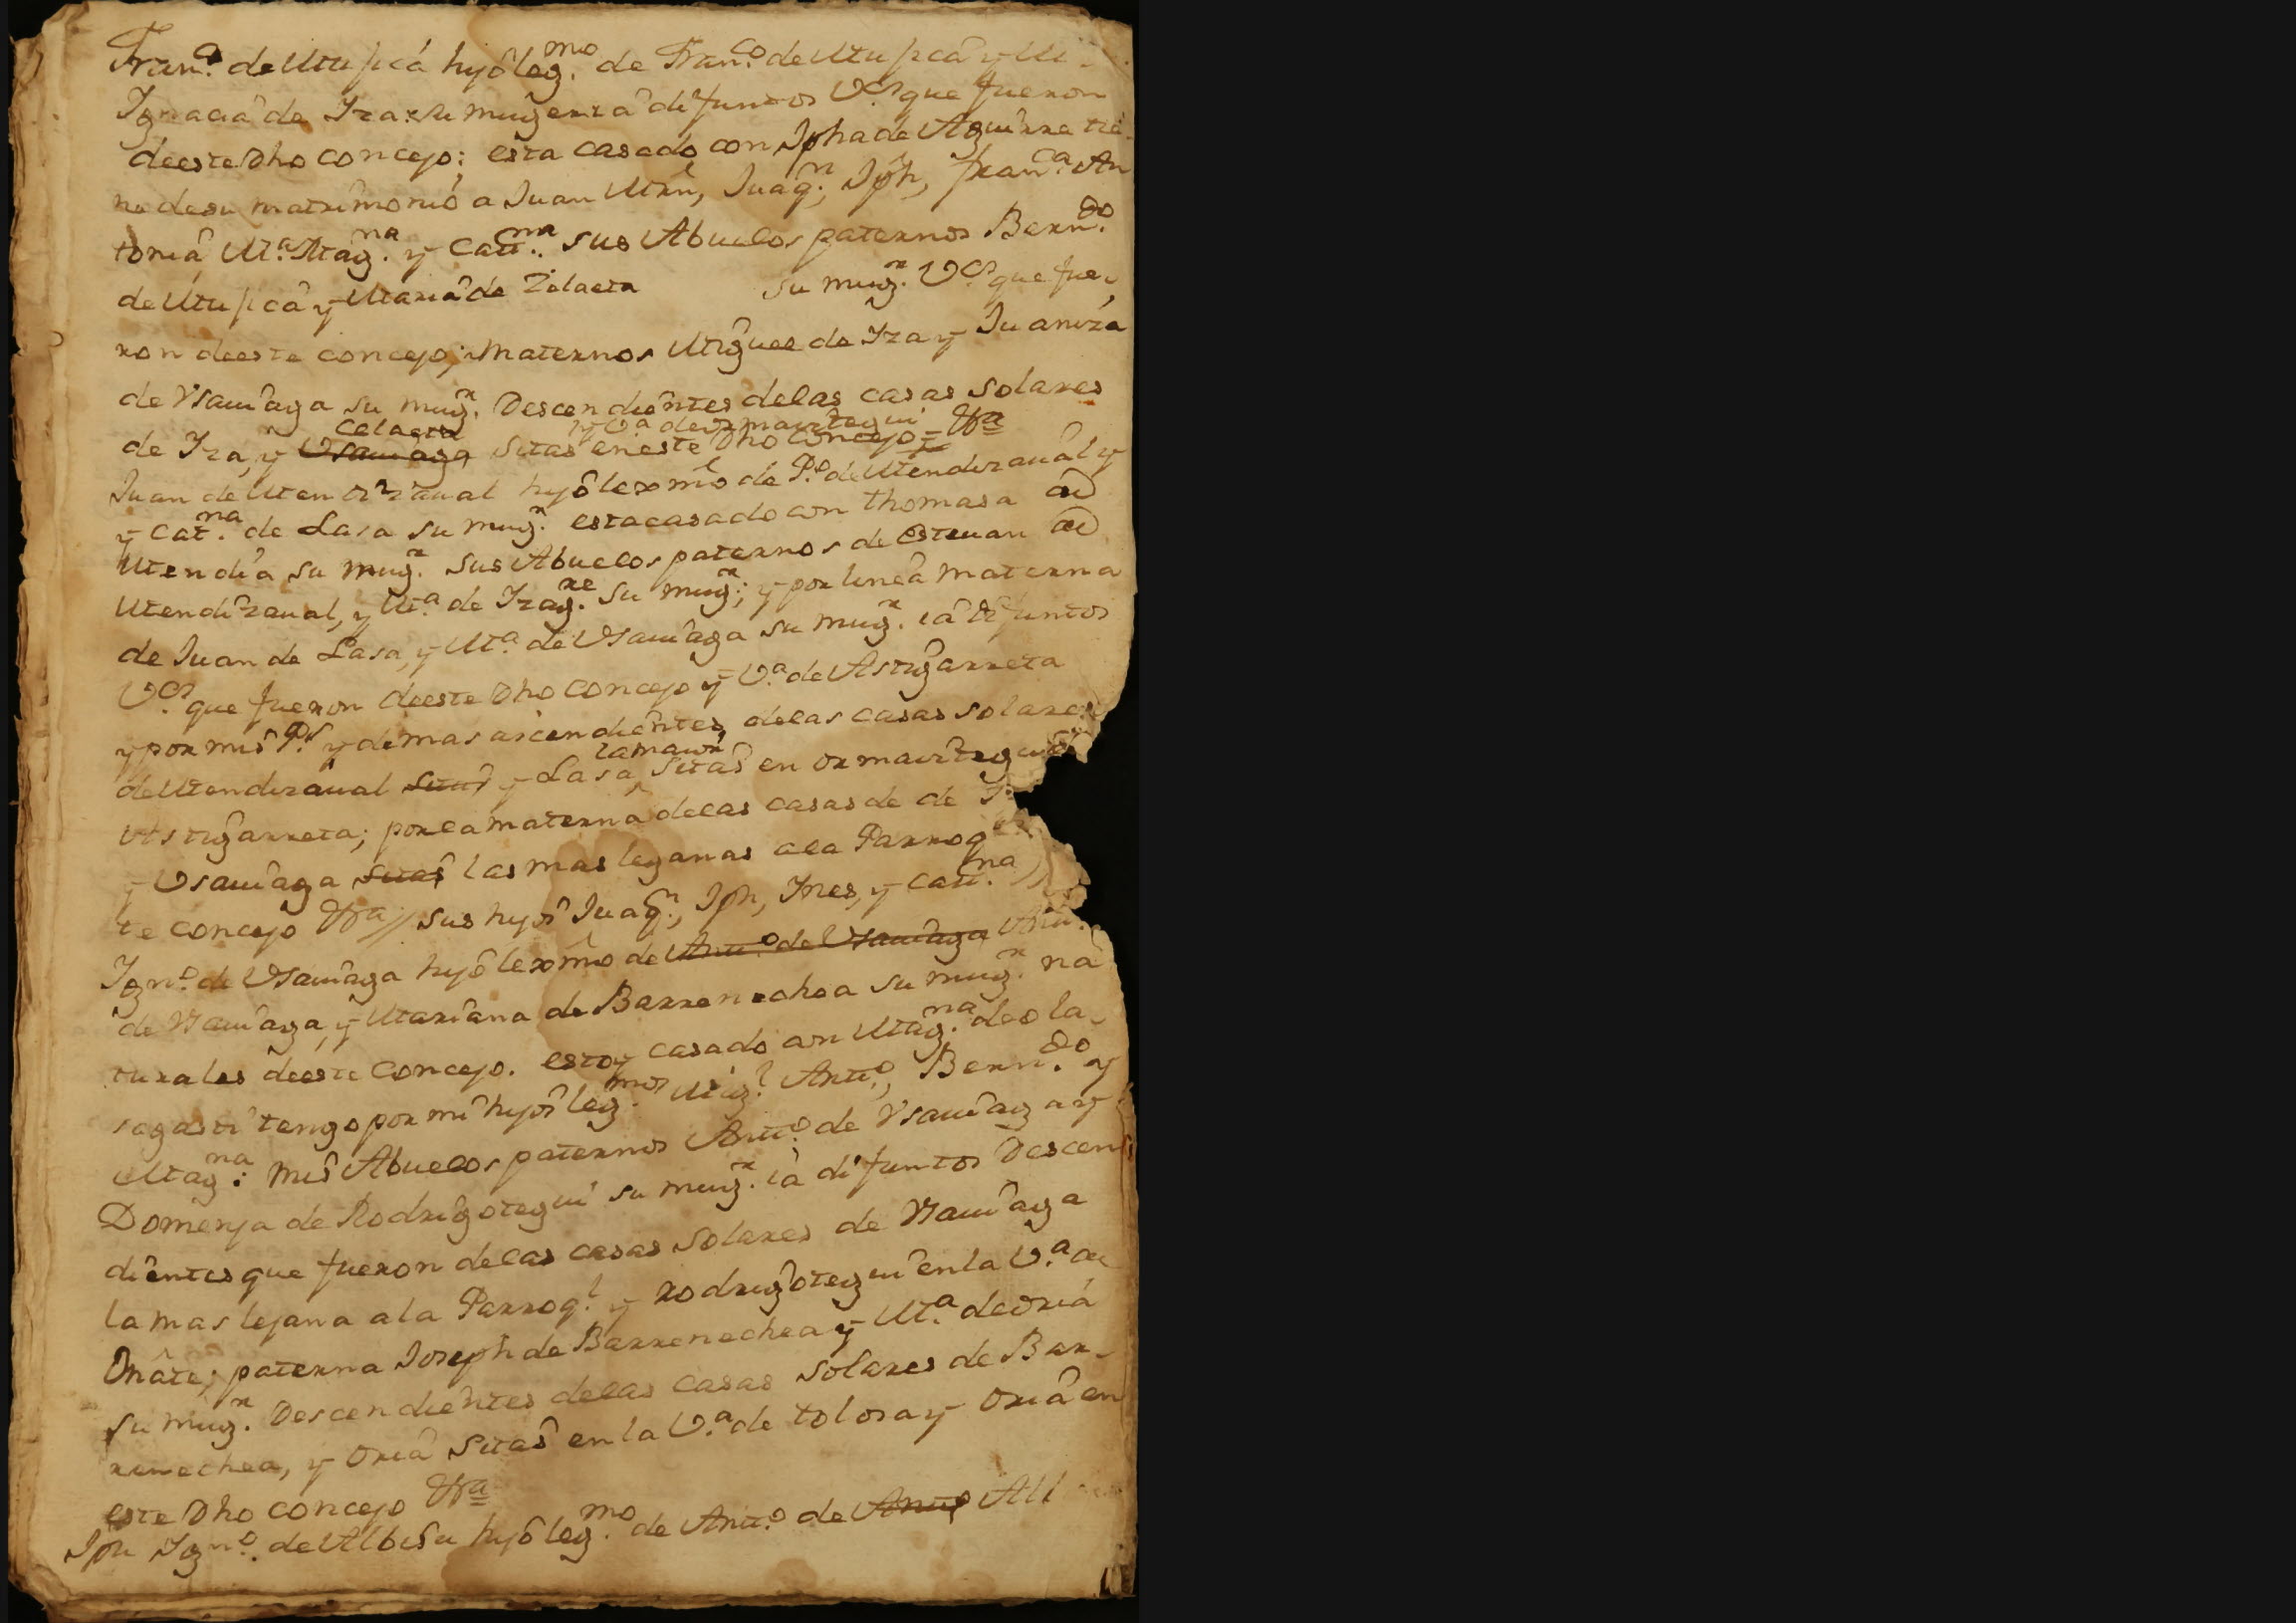 Fran.co de Mujica hijo leg.mo de Fran.co de Mujica y M.
Ignacia de Iza su muger ia difuntos V.os que fueron
de este Dho concejo; esta casado con Jpha de Aguirre tie
ne de su matrimonio a Juan Mrn, Juaq.n, Jph, fran.ca An
tonia, M.a Mag.na y Catt.na sus Abuelos paternos Bern.do
de Mujica y Maria de Zelaeta su mug.r V.os que fue
ron de este concejo; maternos Miguel de Iza y Juaniza
de Vsauiaga su mug.r Descendientes de las casas solares
de Iza, y Vsauiaga celaeta sitas en este Dho concejo y V.a de ormaiztegui = Ffa
Juan de Mendizaual hijo lexmo de P.o de Mendizaual y
y Cat.na de Lasa su mug.r esta casado con Thomasa de
Mendia su mug.r sus Abuelos paternos de Esteuan de
Mendizaual, y M.a de Izag.re su mug.r; y por linea materna
de Juan de Lasa, y M.a de Vsauiaga su mug.r ia difuntos
V.os que fueron de este Dho concejo y V.a de Astigarreta
y por mis P.s y demas ascendientes, de las casas solares
de Mendizaual sitas y Lasa, la maior sitas en ormaiztegui
Astigarreta; por la materna de las casas de de
y Vsauiaga sitas las mas lejanas a la Parroq
te concejo Ffa // sus hijos Juaq.n, Jph, Ines, y Catt.na
Ign.o de Vsauiaga hijo lexmo de Antt.o de Vsauiaga Antt.
de Vsauiaga, y Mariana de Barrenechea su mug.r na
turales de este concejo. estoy casado con Mag.na de ola
sagasti tengo por mis hijos leg.mos Mig.l Antt.o, Bern.do y
Mag.na: mis Abuelos paternos Antt.o de Vsauiaga y
Domenja de Rodrigotegui su mug.r ia difuntos Descen
dientes que fueron de las casas solares de Vsauiaga
la mas lejana a la Parroq.l y Rodrigotegui en la V.a de
Oñate; paterna Joseph de Barrenechea y M.a de oria
su mug.r Descendientes de las casas solares de Bar
renechea, y oria sitas en la V.a de tolosa y oria en
este Dho concejo Ffa
Jph Ign.o de Albisu hijo leg.mo de Antt.o de Antt.o Al